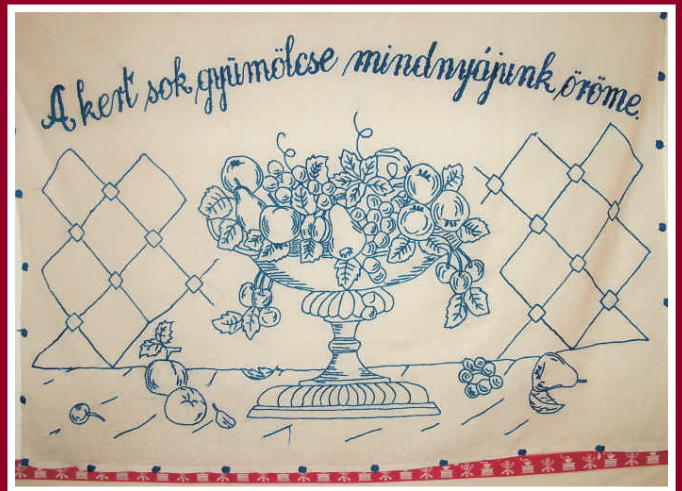 A kert sok gyümölcse mindnyájunk öröme.